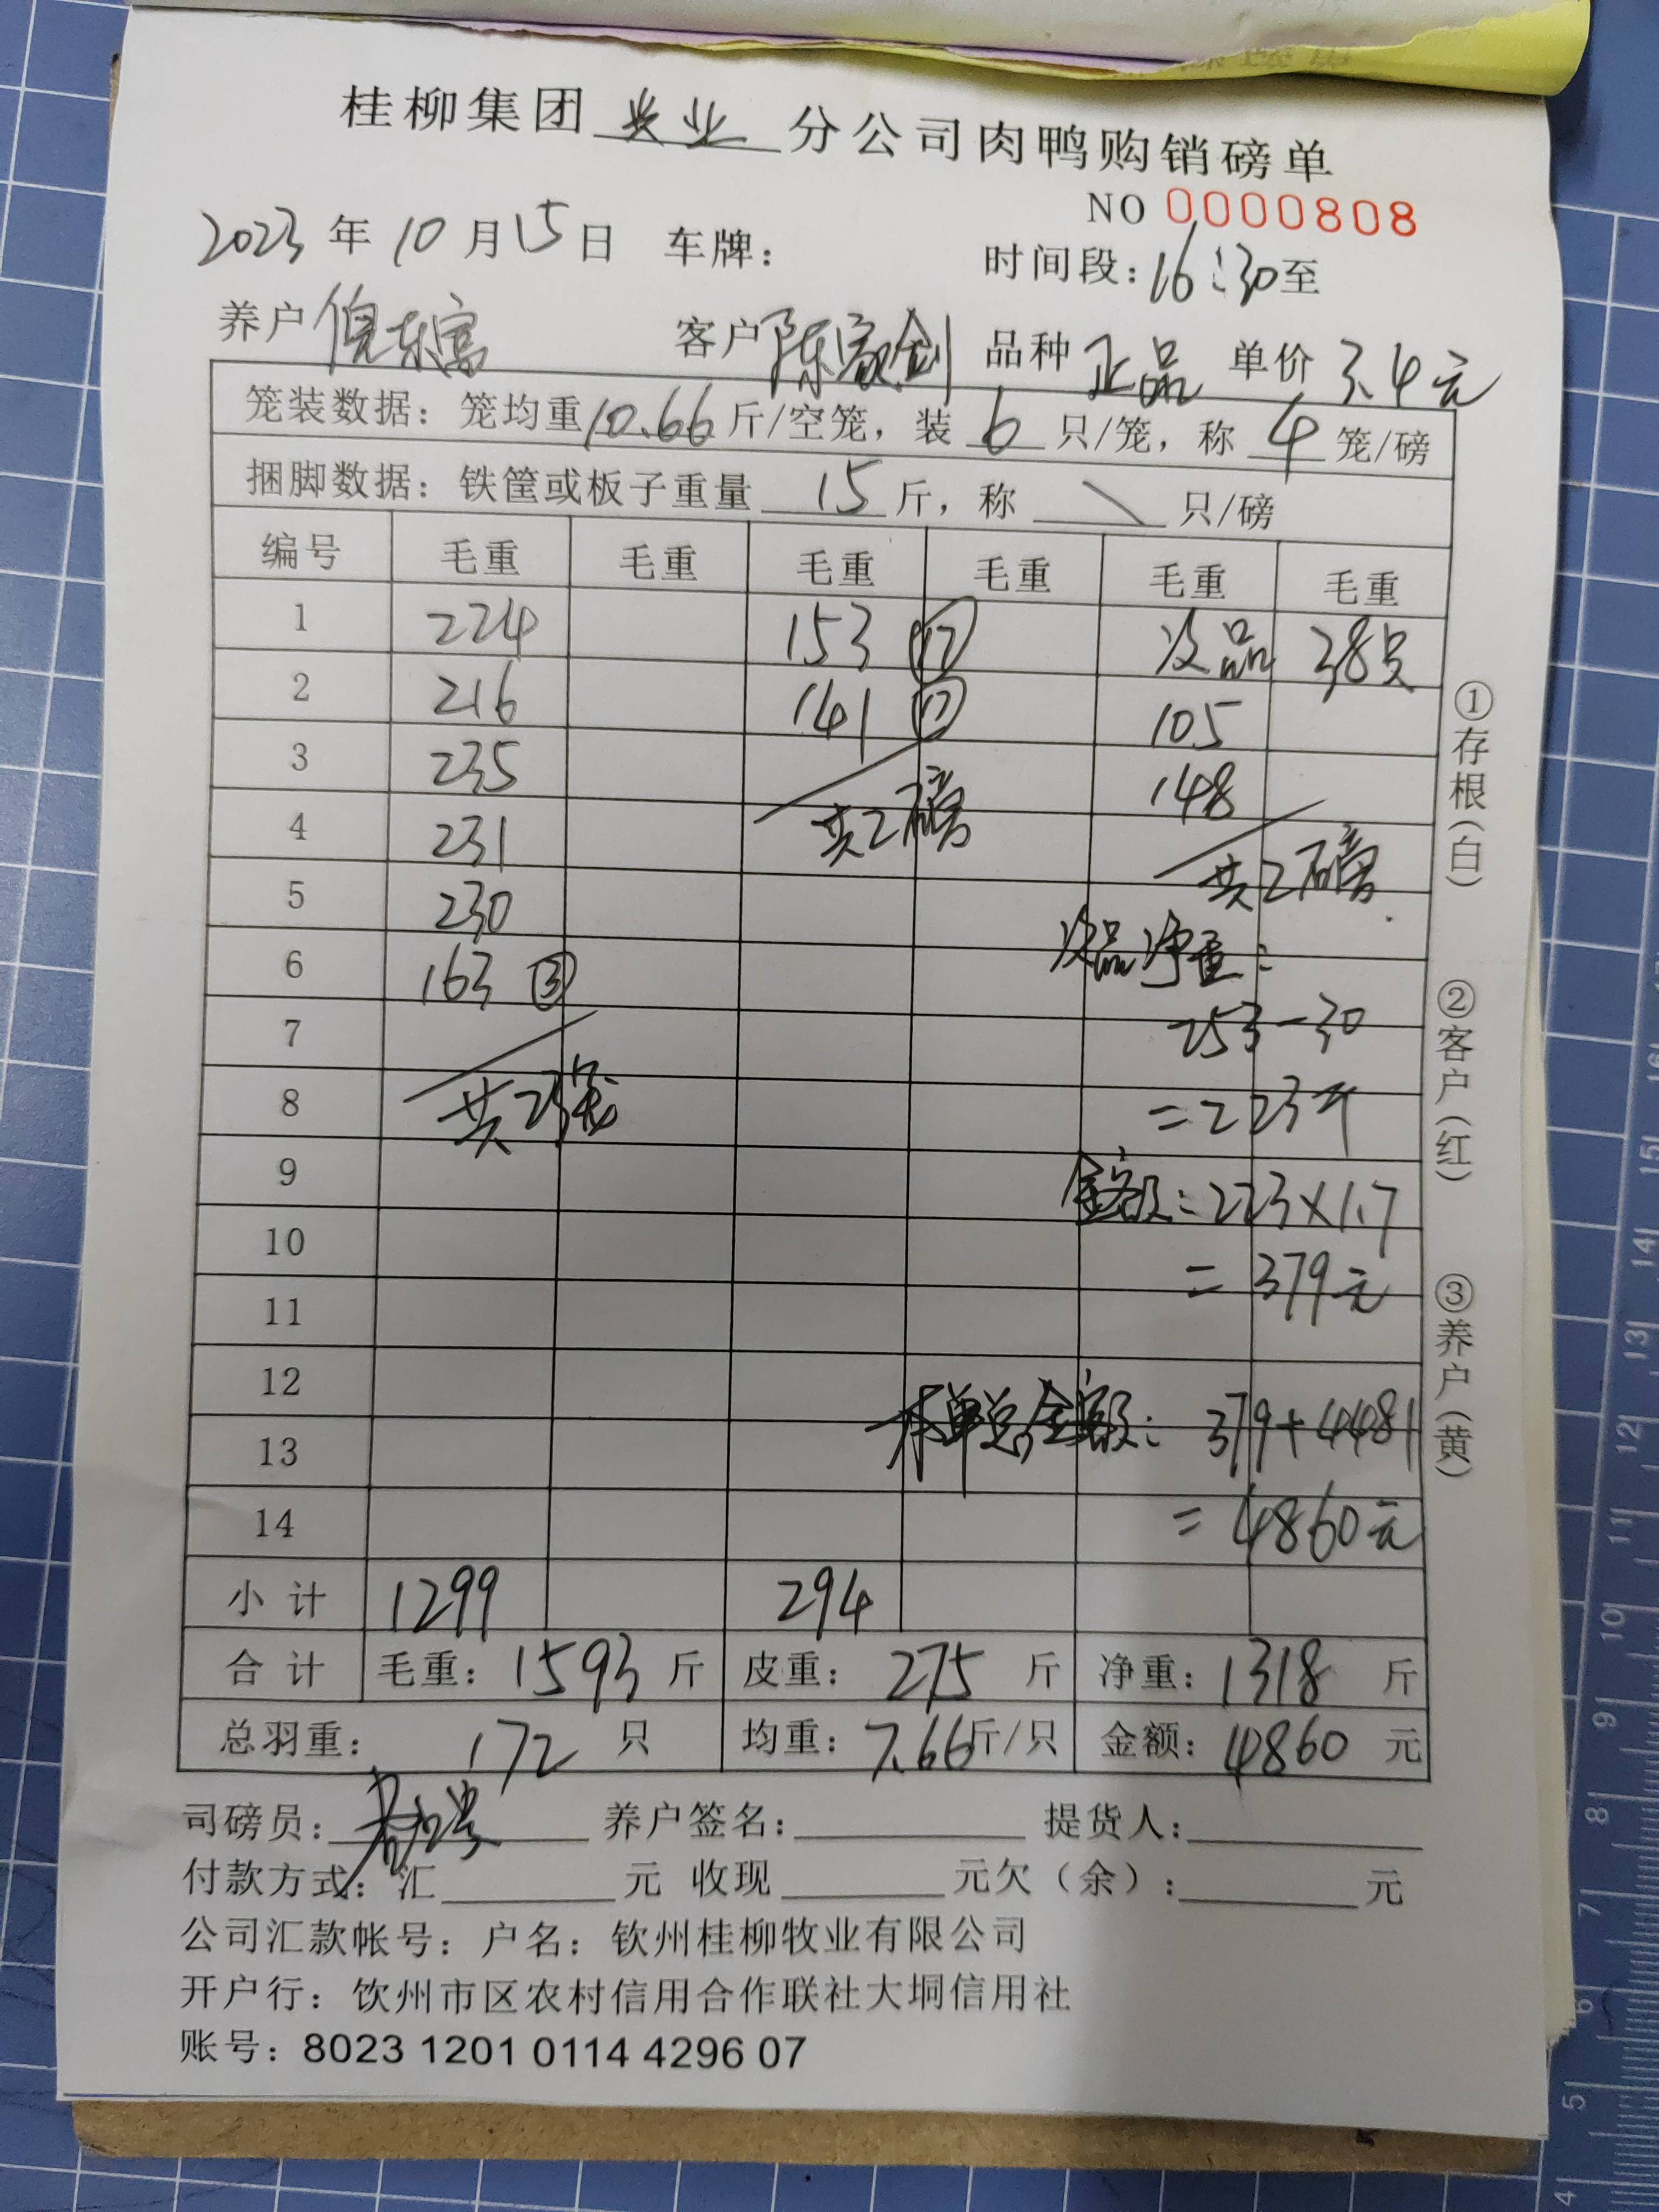 桂柳集团 兴业 分公司肉鸭购销磅单
NO 0000808
2023 年 10 月 15 日 车牌： 时间段：16:30至
养户 倪东富 客户 陈家剑 品种 正品 单价 3.4元
笼装数据：笼均重10.66斤/空笼，装 6 只/笼，称 4 笼/磅
捆脚数据：铁筐或板子重量 15 斤，称 \ 只/磅
编号 毛重 毛重 毛重 毛重 毛重 毛重
1 224 153 ⑰ 次品 38只
2 216 141 ⑰ 105
3 235 148
4 231 共2磅 共2磅
5 230
6 163 ③ 次品净重：
7 253-30
8 共23笼 =223斤
9 金额：223×1.7
10 =379元
11
12
13 本单总金额：379+4481
14 =4860元
小计 1299 294
合计 毛重：1593 斤 皮重：275 斤 净重：1318 斤
总羽重：172 只 均重：7.66斤/只 金额：4860 元
司磅员： 养户签名： 提货人：
付款方式：汇 元 收现 元欠（余）： 元
公司汇款帐号：户名：钦州桂柳牧业有限公司
开户行：钦州市区农村信用合作联社大垌信用社
账号：8023 1201 0114 4296 07
①存根（白）
②客户（红）
③养户（黄）